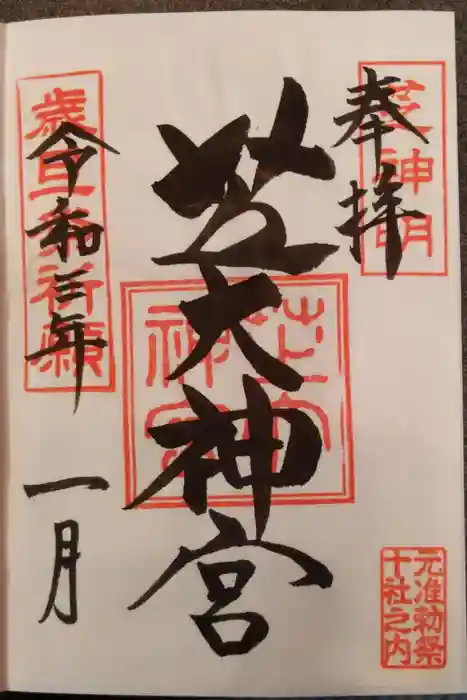 奉拝
芝神明
芝大神宮
芝大神宮
歳旦祭祈願
令和三年
一月
元准勅祭
十社之内